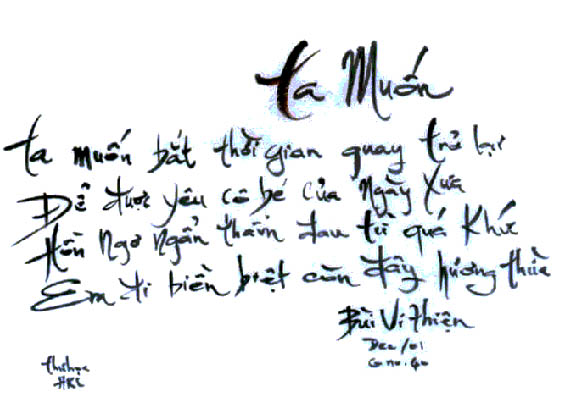 Ta Muốn
Ta muốn bắt thời gian quay trở lại
Để được yêu cô bé của ngày xưa
Hồn ngơ ngẩn thầm đau từ quá khứ
Em đi biền biệt còn đây hương thừa
Bùi Vi Thiện
Dec/01